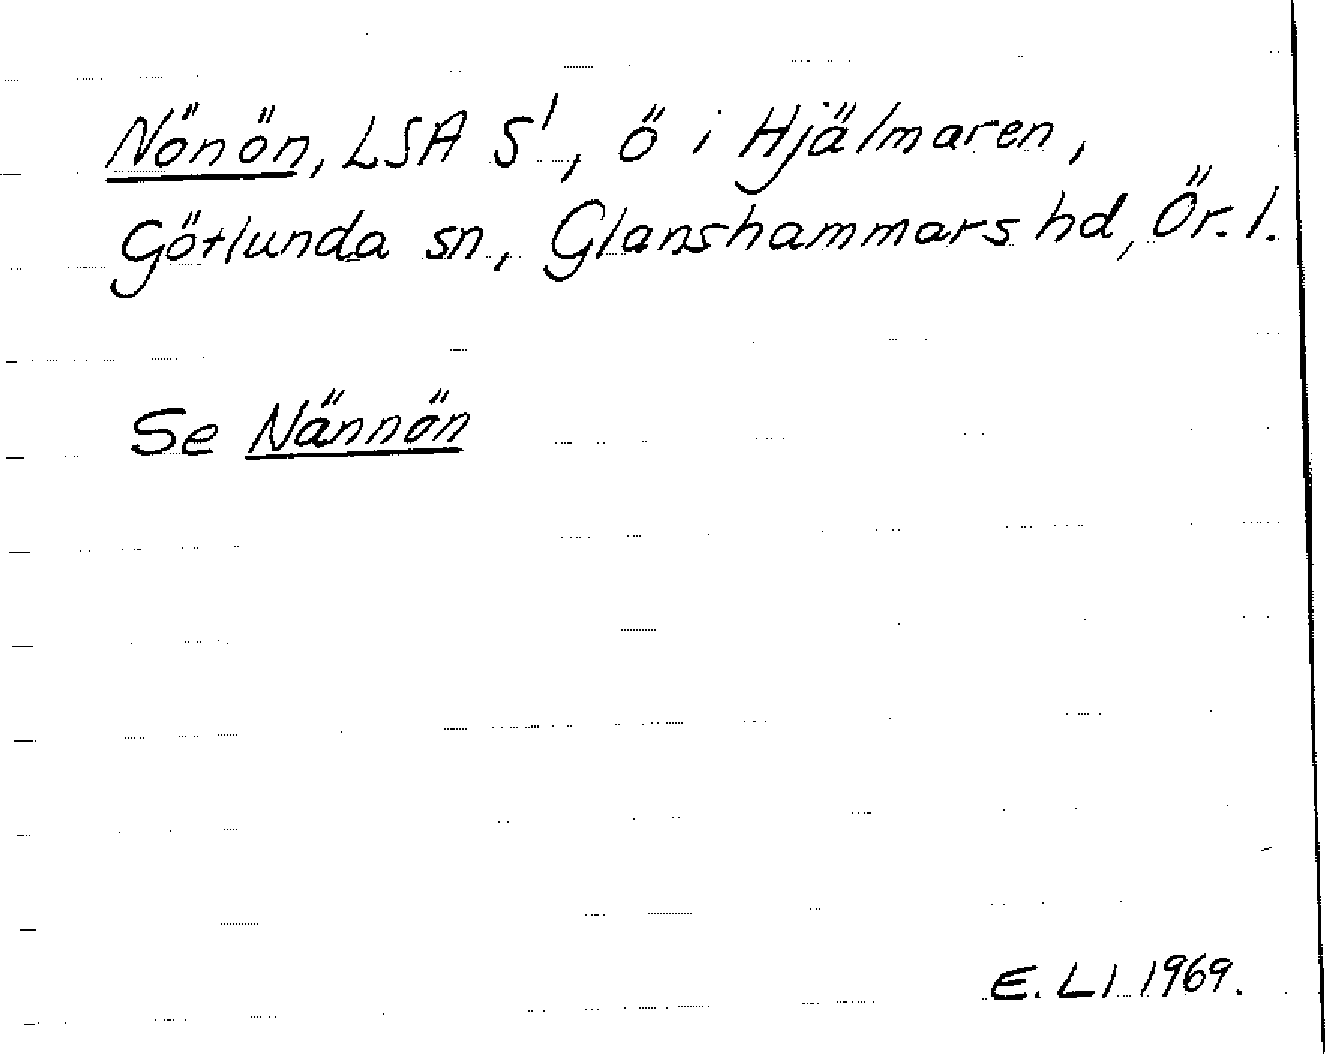 Nönön, LSA S1, ö i Hjälmaren,
Götlunda sn, Glanshammars hd, Ör. l.
Se Nännön
E. Ll 1969.